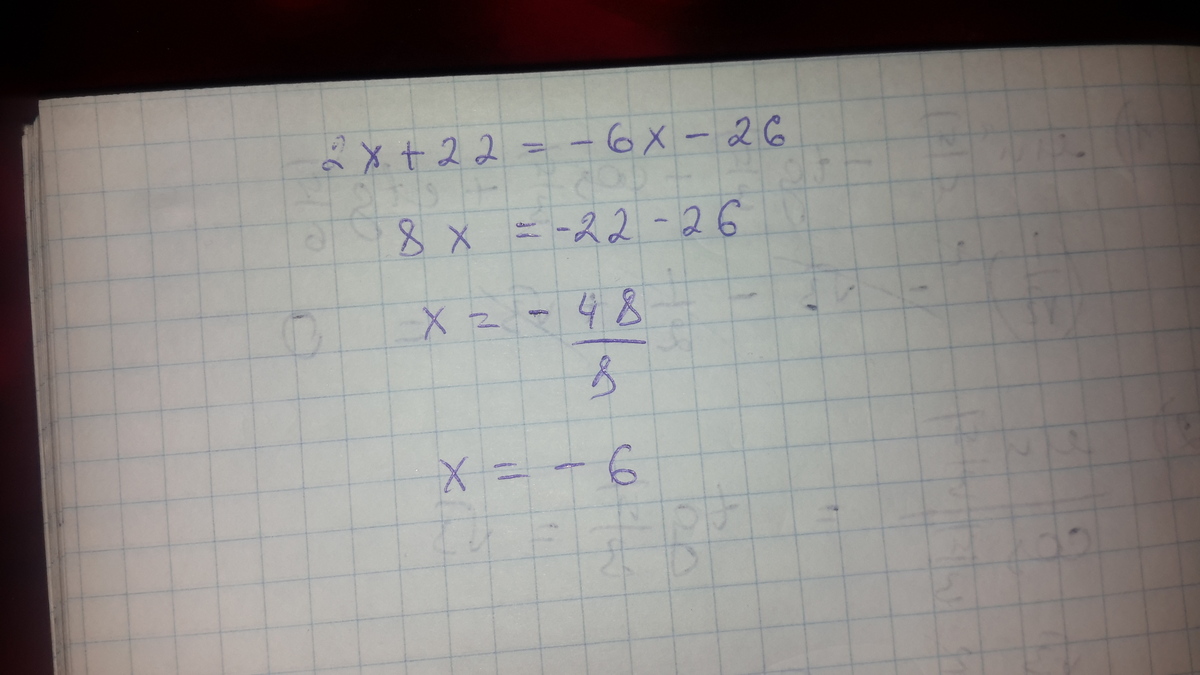 2x + 22 = - 6x - 26
8x = -22 - 26
x = - 48/8
x = - 6